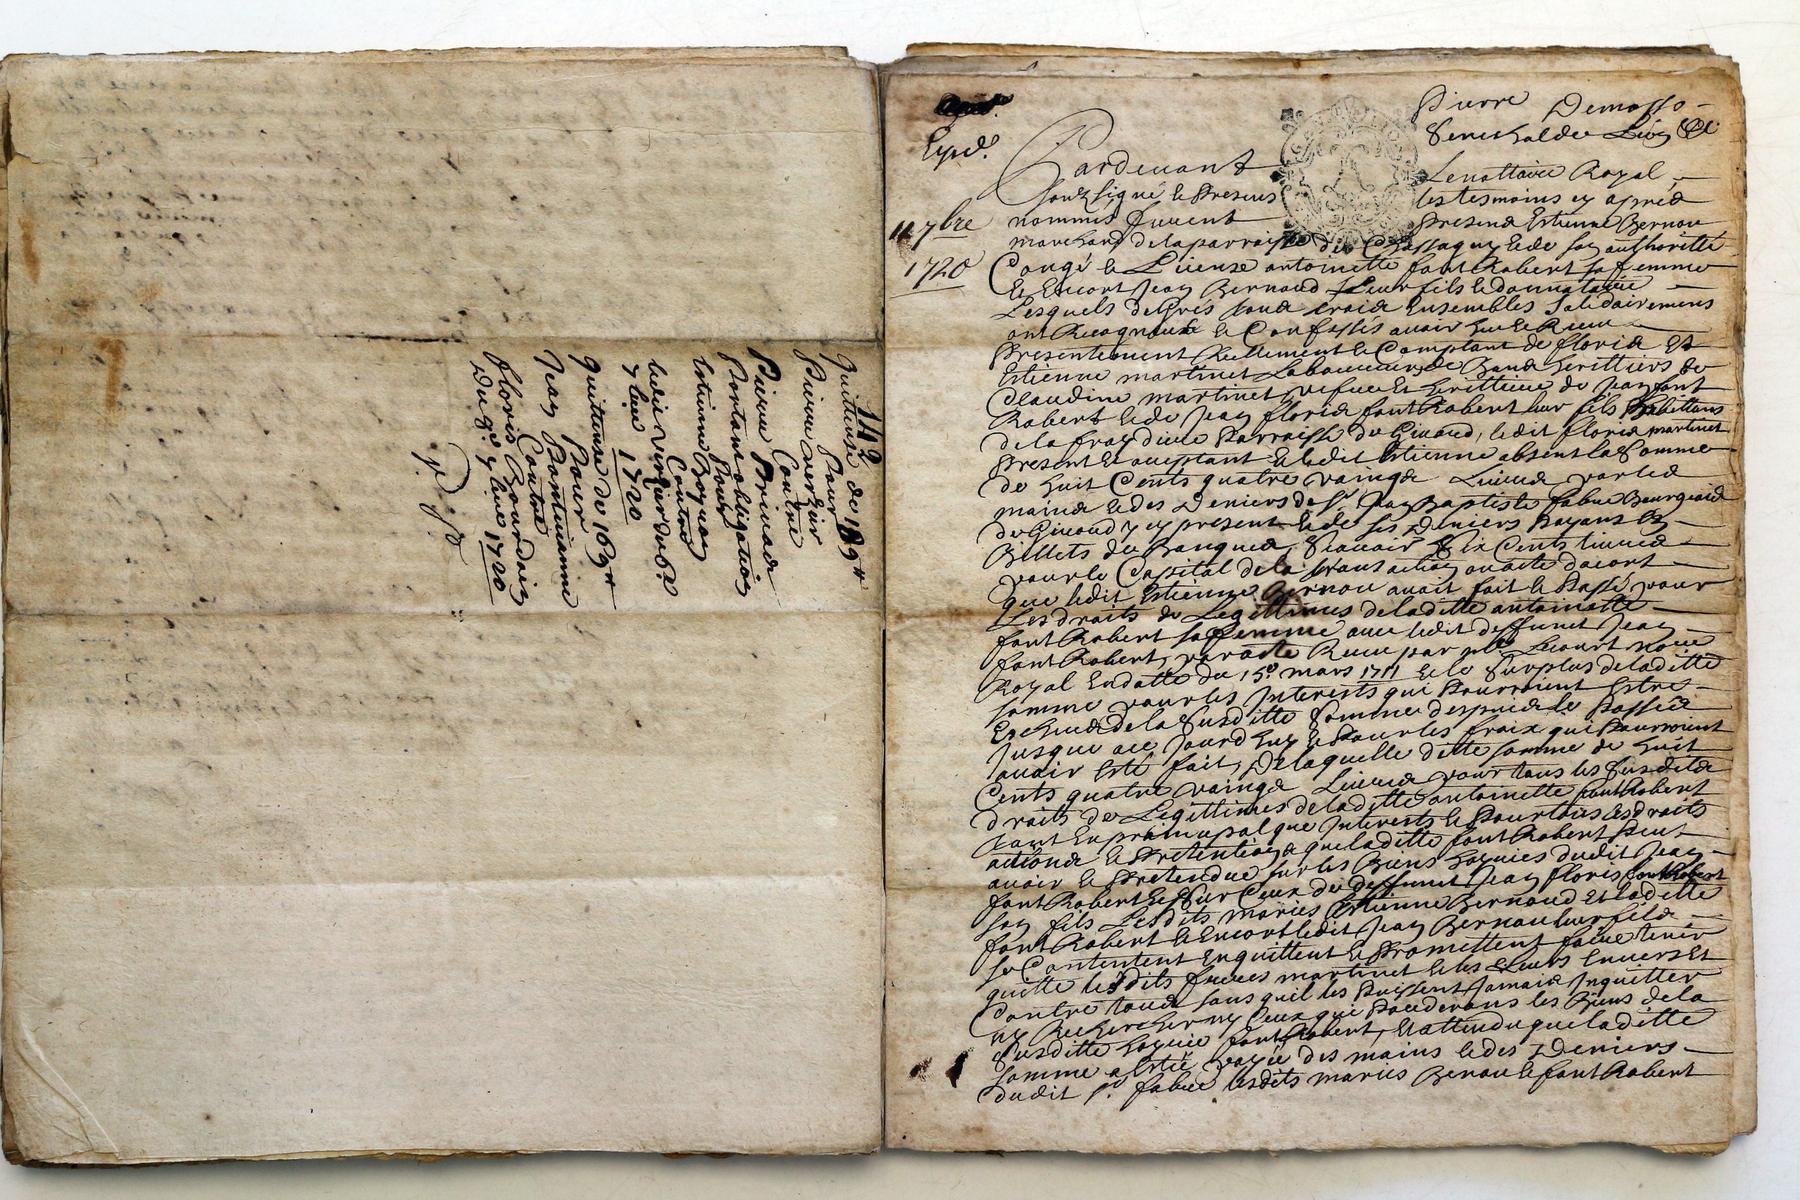 142
Quittense de 189ᵗᵗ
Pour
Pierre verEzir
Contre
Pierre
Portant obligation
Pour
Estienne Boyron
Contre
ledit du 6ᵉ
7bre 1720
quittense de 169ᵗᵗ
Pour
Jean
Contre
floris Bourdoin
Du 9ᵉ 7bre 1720
Expd.
11 7bre
1720
Pierre Demasso
Seneshal de Lion &c.
Pardevant Le nottaire Royal
soubsigné & Presens les tesmoins cy apres
nommés furent Presens Estienne Bernou
marchand de la parroisse de Chassagny & de son authorité
Congé & License antoinette font Robert sa femme
& Encort Jean Bernoud Leur fils & donnataire
Lesquels de Grés Ensembles Solidairement
ont Recognus & Confessés avoir heu & Receu
Presentement Reellement & Comptant de floris Et
Estienne martinet Laboureurs de heritiers de
Claudine martinet, vefve & herittiere de Jean font
Robert & de Jean floris font Robert leur fils habittans
de la parroisse de Givord, ledit floris martinet
Present & aceptant & ledit Estienne absent La Somme
de huit Cents quatre vaings Livres par les
mains & des Deniers de Sr. Jean Baptiste fabre Bourgeois
de Givord y cy present & de ses Deniers Payant En
Billets de Banque, Scavoir Six Cents livres
pour le Capital de la transaction ou acte dacort
que ledit Estienne Bernou avait fait & Passé pour
Les droits de Legittimes de laditte antoinette
font Robert sa femme avec ledit deffunct Jean
font Robert, par acte Receu par Mᵉ Lecourt nore
Royal En datte du 15ᵉ mars 1711 & le Surplus de laditte
somme pour les Interests qui Pourroient Estre
Echeus de la Susditte Somme despuis le Passé
Jusque a ce Jourd'huy & Pour les fraix qui Pourroient
avoir Esté fait, De laquelle ditte somme de huit
Cents quatre vaings Livres pour tous les Susdits
droits de Legittimes de laditte antoinette font Robert
tant En principal que Interests & Pour tous les droits
actions & Pretentions que laditte font Robert Peut
avoir & Pretendre sur les Biens dudit Jean
font Robert & Sur Ceux de deffunct Jean floris font Robert
son fils Lesdits mariés Estienne Bernoud Et laditte
font Robert & Encort ledit Jean Bernou leur fils
se Contentent En quittent & Promettent faire tenir
quitte lesdits freres martinet & les Leurs Envers Et
Contre tous sans quil les Puissent Jamais Inquietter
ny Rechercher ny Ceux qui Possederons les Biens de la
Susditte font Robert, Et attendu que laditte
somme a Esté payée des mains & des Deniers
dudit Sr. fabre lesdits mariés Bernou & font Robert